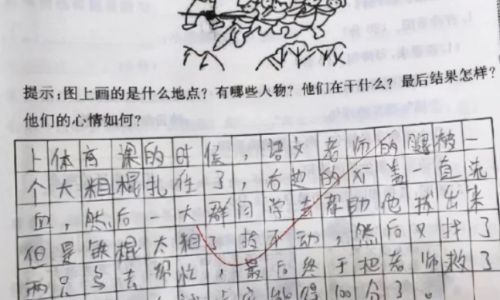 提示：图上画的是什么地点？有哪些人物？他们在干什么？最后结果怎样？
他们的心情如何？
上体育课的时候，语文老师的腿被一
个大粗棍扎住了，右边的盖一直流
血，然后一大群同学去帮助他拔出来
但是铁棍太粗了拔不动，然后又找了
两只鸟去帮忙，最后终于把老师救了
100分了。